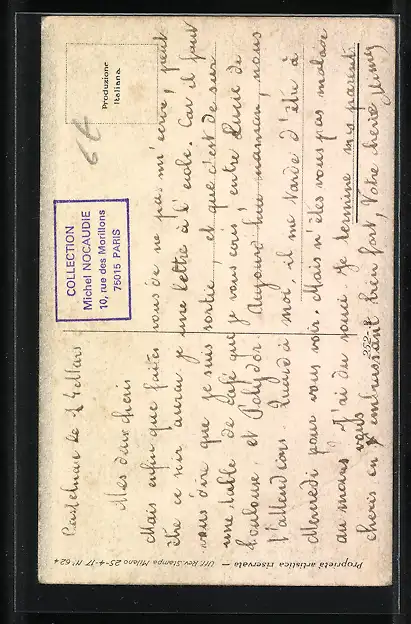 Produzione
Italiana.
COLLECTION
Michel NOCAUDIE
10, rue des Morillons
75015 PARIS
Castelnau le 2
Mes deux cheris
Mais enfin que faites vous de ne pas m'ecrire! peut
être ce soir aurai je une lettre à l'école. Car il faut
vous dire que je suis sortie, et que c'est de sur
une table de café que je vous ecris, entre Lucie de
Toulouse, et Polydor. Aujourd'hui maman, nous
l'attendions. Quand à moi, il me tarde d'être à
Mercredi pour vous voir. Mais n'êtes vous pas malade
au moins? J'ai du souci. Je termine mes parents
cheris en vous embrassant bien fort, Votre cherie
252-2
Proprietà artistica riservata — Uff. Rev. Stampa Milano 25-4-17 n° 624